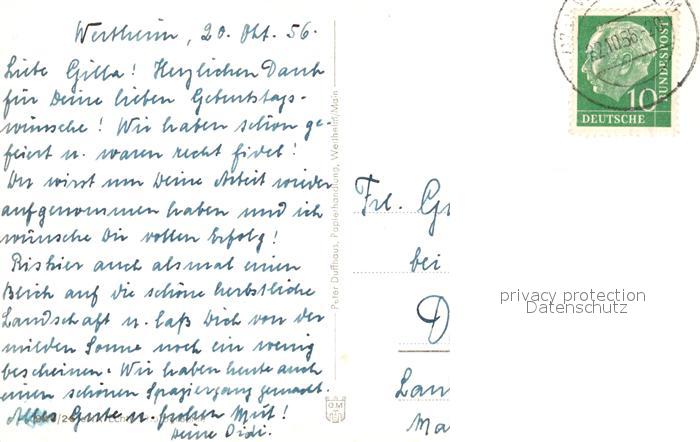 Wertheim, 20. Okt. 56.
Liebe Gilla! Herzlichen Dank
für Deine lieben Geburtstags-
wünsche! Wir haben schon ge-
feiert u. waren recht fidel!
Du wirst nun Deine Arbeit wieder
aufgenommen haben und ich
wünsche Dir vollen Erfolg!
Riskier auch alsmal einen
Blick auf die schöne herbstliche
Landschaft u. laß Dich von der
milden Sonne noch ein wenig
bescheinen. Wir haben heute auch
einen schönen Spaziergang gemacht.
Alles Gute u. frohen Mut!
Deine Didi.
Peter Duffhaus, Papierhandlung, Wertheim/Main
Frl. G
bei
D
Lan
Ma
10
DEUTSCHE
BUNDESPOST
privacy protection
Datenschutz